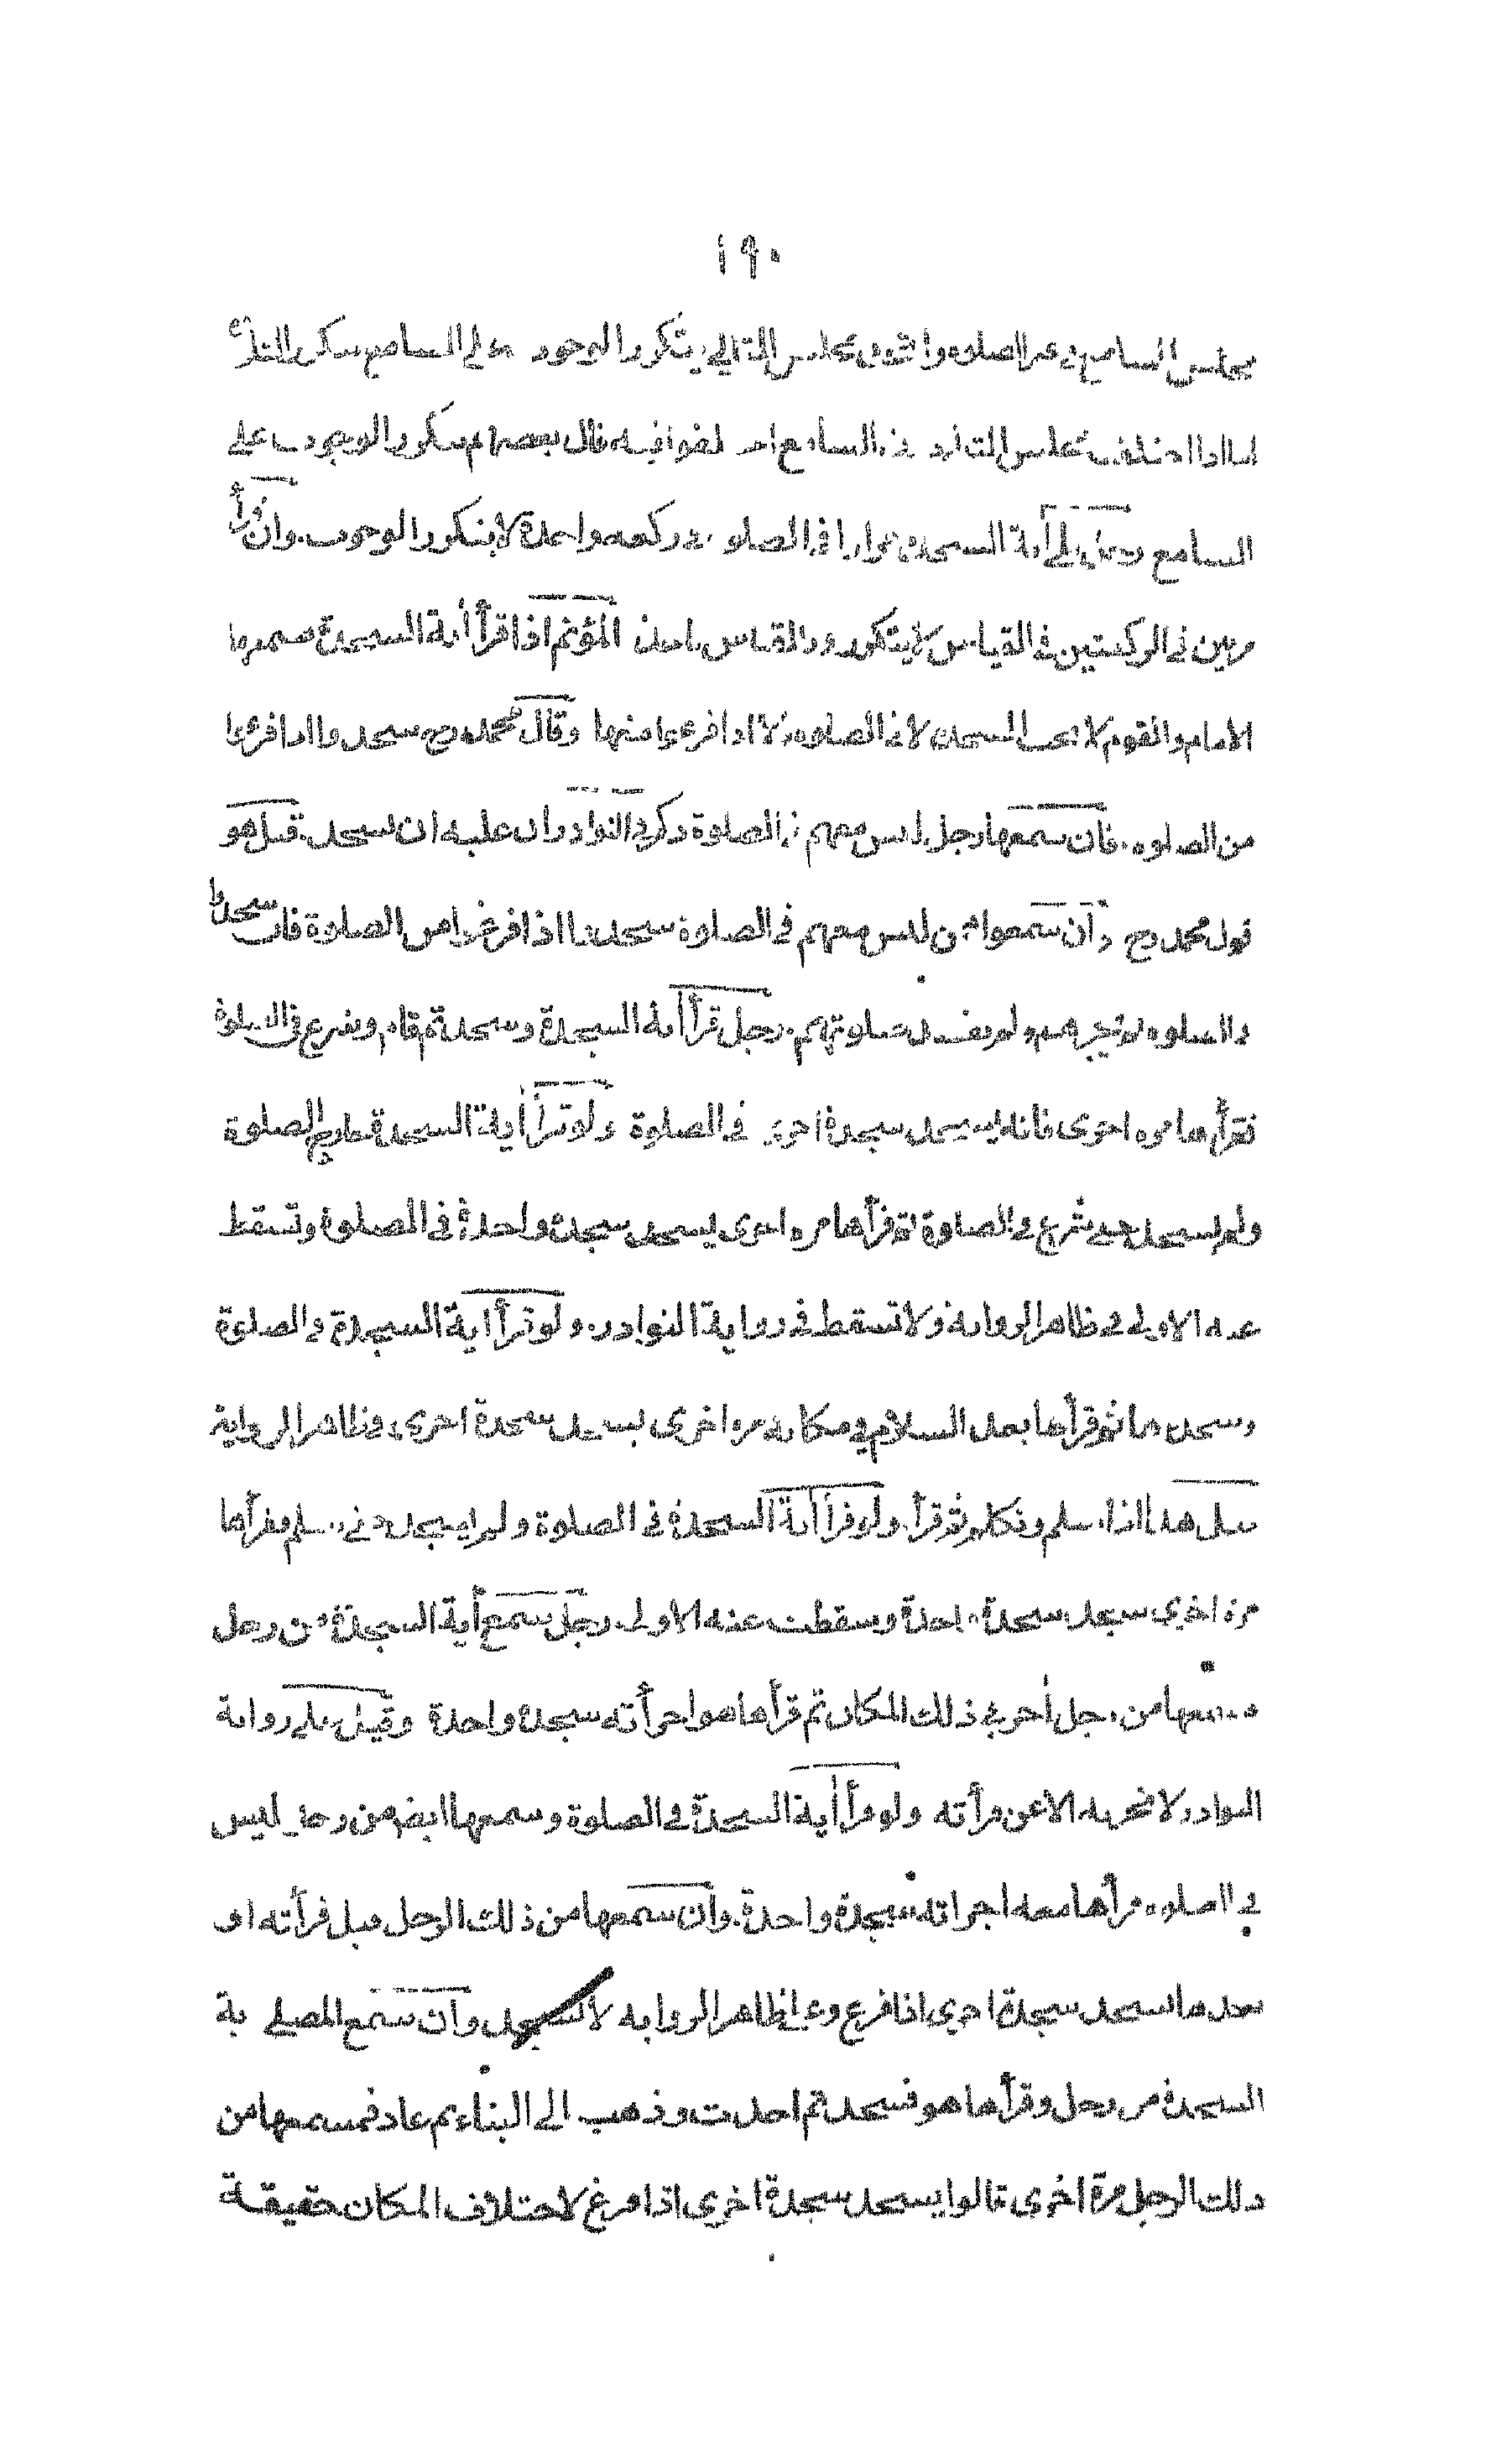 ١٩٠
مجلس السامع في غير الصلاة واتحد مجلس التالي يتكرر الوجوب على السامع بتكرر التلاوة
اما اذا اختلف مجلس التالي دون السامع اختلفوا فيه قال بعضهم يتكرر الوجوب على
السامع ومن تلى آية السجدة مرارا في الصلوة في ركعة واحدة لا يتكرر الوجوب. وان قرأ
مرتين في الركعتين في القياس لا يتكرر وبالقياس ناخذ المؤتم اذا قرأ آية السجدة وسمعها
الامام والقوم لا يجب السجدة لا في الصلاة ولا اذا فرغوا منها وقال محمد رح يسجدوا اذا فرغوا
من الصلوة. فان سمعها رجل ليس معهم في الصلوة ذكر في النوادر ان عليه ان يسجد. قيل هو
قول محمد رح وان سمعوا ممن ليس معهم في الصلوة سجدوا اذا فرغوا من الصلوة فان سجدوا
في الصلوة لا تجزيهم ولم يفسد صلوتهم. رجل قرأ آية السجدة وسجد ثم قام وشرع في الصلوة
فقرأها مرة اخرى فانه يسجد سجدة اخرى في الصلوة ولو قرأ آية السجدة خارج الصلوة
ولم يسجد حتى شرع في الصلوة ثم قرأها مرة اخرى يسجد سجدة واحدة في الصلوة وتسقط
عنه الاولى في ظاهر الرواية ولا تسقط في رواية النوادر. ولو قرأ آية السجدة في الصلوة
وسجد ها ثم قرأها بعد السلام في مكانه مرة اخرى يسجد سجدة اخرى في ظاهر الرواية
قيل هذا اذا سلم وتكلم ثم قرأ. ولو قرأ آية السجدة في الصلوة ولم يسجد حتى سلم فقرأها
مرة اخرى سجد سجدة واحدة وسقطت عنه الاولى. رجل سمع آية السجدة من رجل
وسمعها من رجل آخر في ذلك المكان ثم قرأها هو اجزأته سجدة واحدة وقيل على رواية
النوادر لا تجزيه الا عن قرأته ولو قرأ آية السجدة في الصلوة وسمعها ايضا من رجل ليس
في الصلوة قرأها معه اجزاته سجدة واحدة. وان سمعها من ذلك الرجل قبل قرأته او
بعدها يسجد سجدة اخرى اذا فرغ وعلى ظاهر الرواية لا يسجد وان سمع المصلي آية
السجدة من رجل وقرأها هو فسجد ثم احدث وذهب الى البناء ثم عاد فسمعها من
ذلك الرجل مرة اخرى قالوا يسجد سجدة اخرى اذا فرغ لاختلاف المكان حقيقة